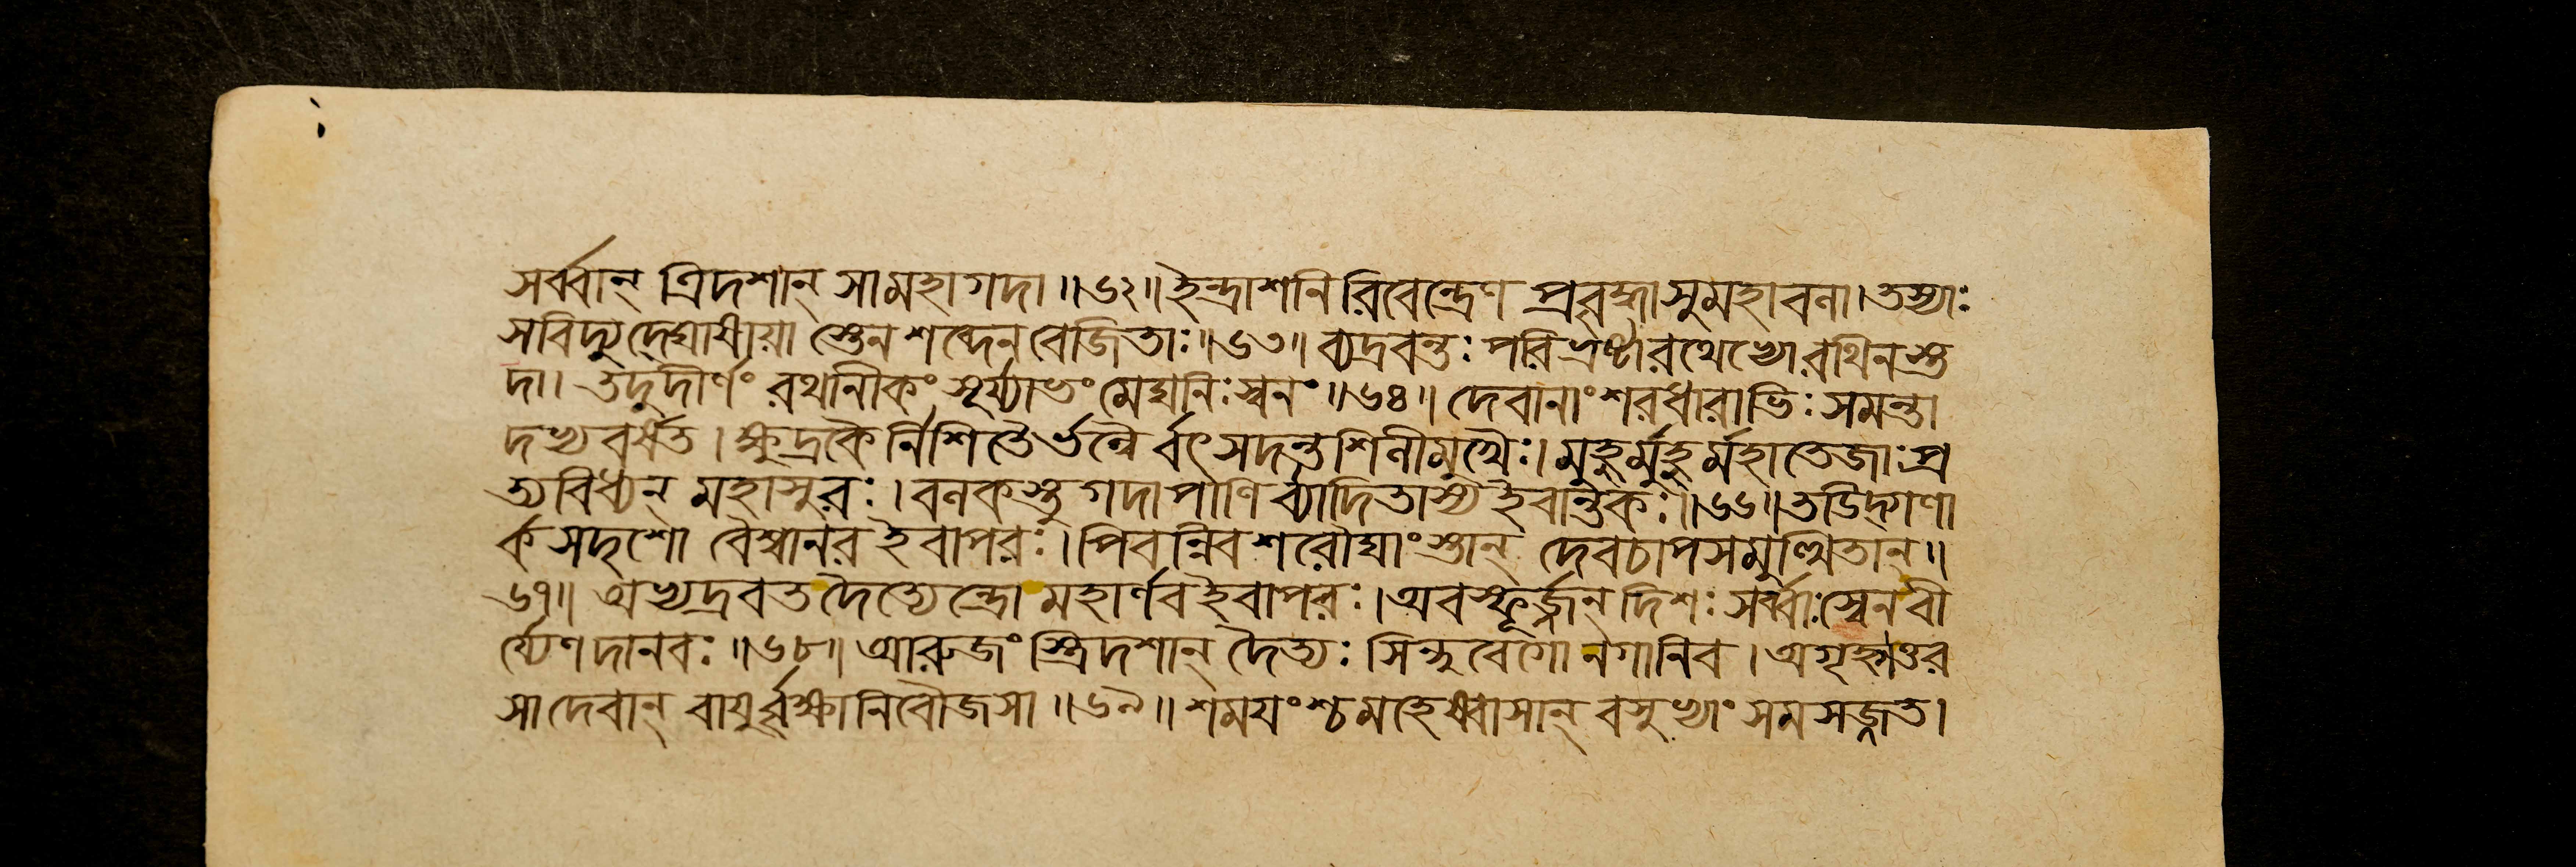 সর্ব্বান্ ত্রিদশান্ সা মহাগদা॥৬২॥ইন্দ্রাশনিরিবেন্দ্রেণ প্রবৃহ্মাসুমহাবনা।তস্যাঃ
সবিদ্যুদ্দ্যোষায়া স্তেন শব্দেন বেজিতাঃ॥৬৩॥ব্যদ্রবন্তঃ পরিভ্রষ্টারথেভ্যোরথিনস্ত
দা। তদুদীর্ণং রথানীকং সূর্য্যাভং মেঘনিঃস্বনং॥৬৪॥ দেবানাং শরধারাভিঃ সমন্তা
দভ্যবর্ষত।ক্ষুদ্রকৈর্নিশিতৈর্ভল্লৈ র্বৎসদন্তশিলীমুখৈঃ।মুহুর্মুহুর্মহাতেজাঃপ্র
ত্যবিধ্যন্ মহাসুরঃ।বলকস্তু গদাপাণি র্ব্যাদিতাস্য ইবান্তকঃ॥৬৬॥তডিদ্গণা
র্ক সদৃশো বৈশ্বানর ইবাপরঃ।পিবন্নিব শরৌঘাংস্তান্ দেবচাপসমুত্থিতান্॥
৬৭॥অভ্যদ্রবত দৈত্যেন্দ্রো মহার্ণব ইবাপরঃ।অবস্ফূর্জ্জন্ দিশঃ সর্ব্বাঃস্বেন বী
র্য্যেণ দানবঃ॥৬৮॥আরুজং স্ত্রিদশান্ দৈত্যঃ সিন্ধুবেগো নগানিব।অগৃহ্ণাত্তর
সা দেবান্ বায়ুর্বৃক্ষানিবৌজসা॥৬৯॥শময়ংশ্চ মহেষ্বাসান্ বসুভ্যাং সমসজ্জত।